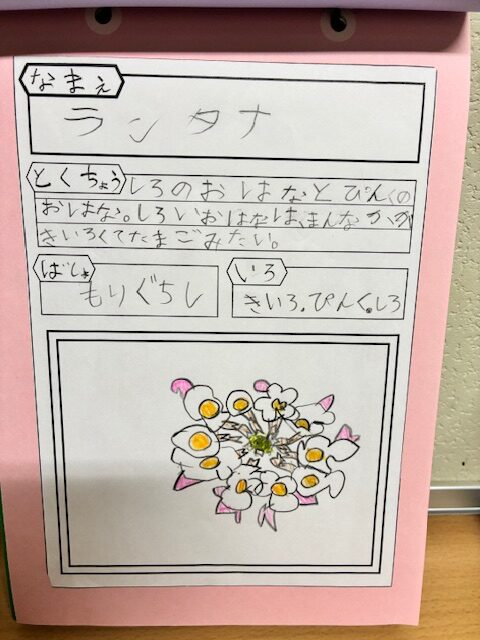 なまえ
ランタナ
とくちょう
しろのおはなとぴんくの
おはな。しろいおはなは、まんなかが
きいろくてたまごみたい。
ばしょ
もりぐちし
いろ
きいろ.ぴんく.しろ